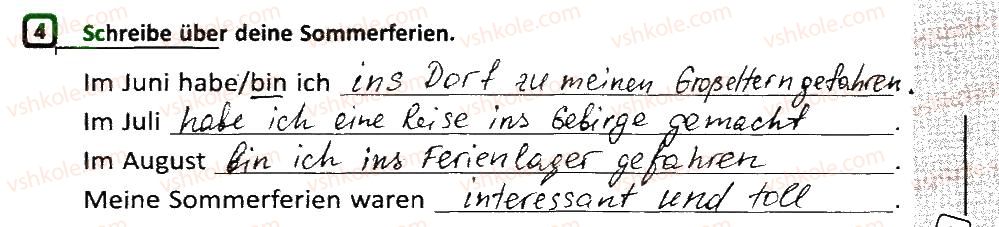 4 Schreibe über deine Sommerferien.
Im Juni habe/bin ich ins Dorf zu meinen Großeltern gefahren.
Im Juli habe ich eine Reise ins Gebirge gemacht.
Im August bin ich ins Ferienlager gefahren.
Meine Sommerferien waren interessant und toll.